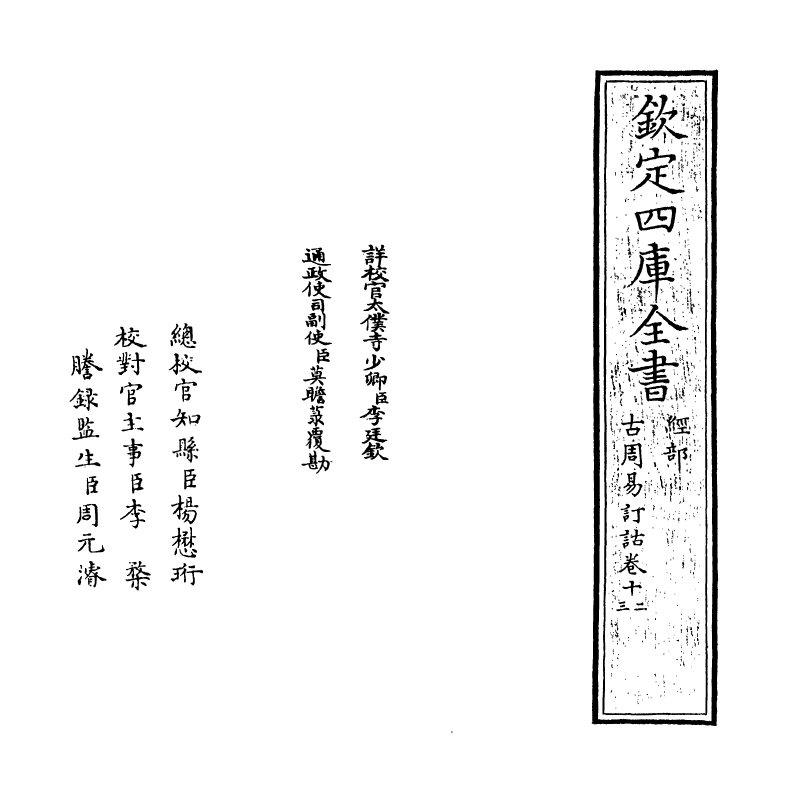 欽定四庫全書
經部
古周易訂詁卷十二三
詳校官太僕寺少卿臣李廷欽
通政使司副使臣莫瞻菉覆勘
總校官知縣臣楊懋珩
校對官主事臣李 楘
謄録監生臣周元濬